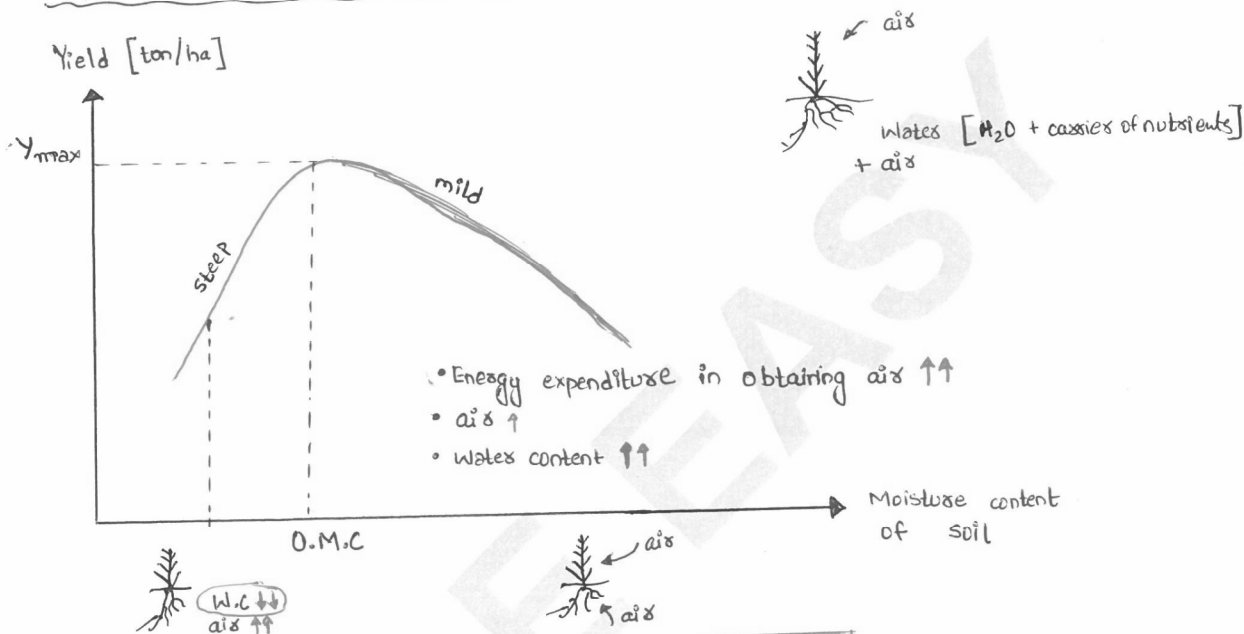 air
Yield [ton/ha]
Water [H₂O + carrier of nutrients]
+ air
Ymax
mild
steep
• Energy expenditure in obtaining air ↑↑
• air ↑
• Water content ↑↑
Moisture content
of soil
O.M.C
air
W.C ↓↓
air
air ↑↑
EASY